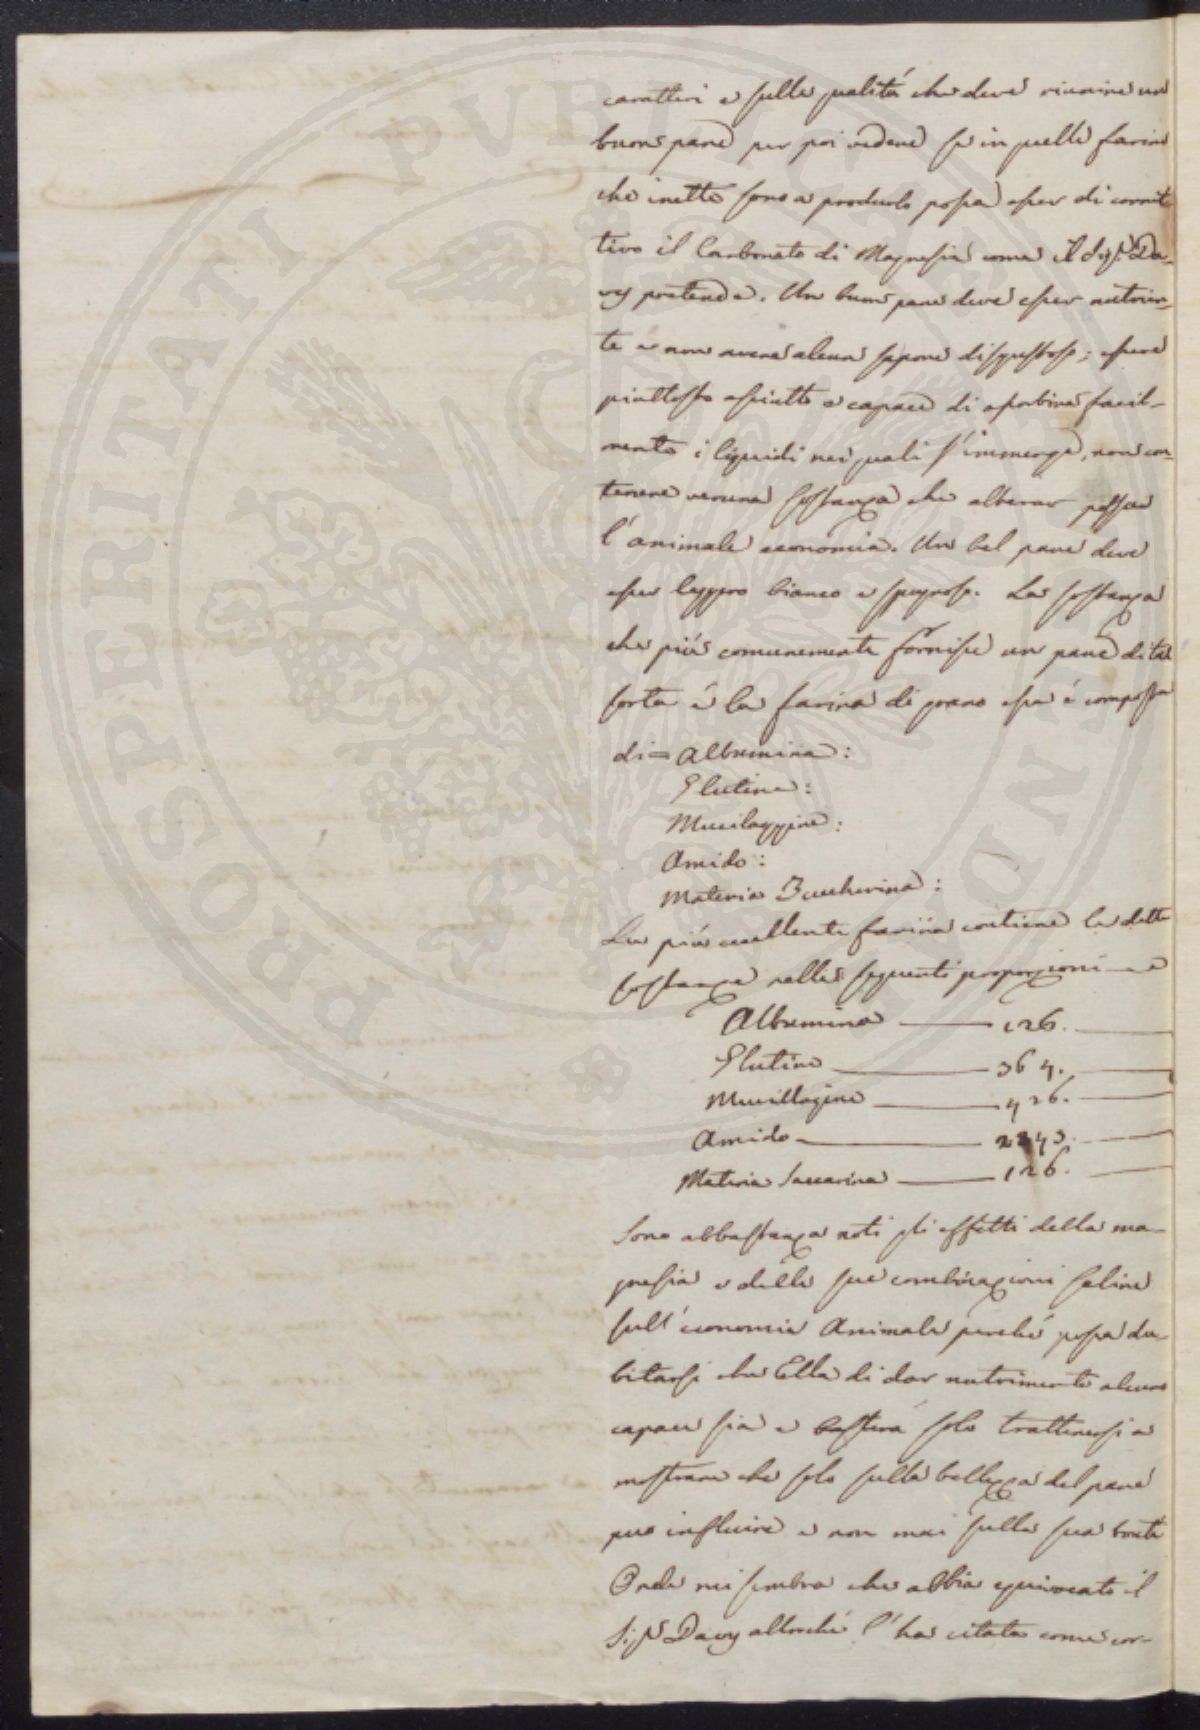 caratteri e sulle qualitá che deve riunire un
buon pane per poi vedere se in quelle farine
che inette sono a produrlo possa esser di corret-
tivo il Carbonato di Magnesia come il Sig.r Da-
vy pretende. Un buon pane deve esser nutrien-
te e non avere alcun sapore disgustoso; essere
piuttosto asciutto e capace di assorbire facil-
mente i liquidi nei quali s'immerge, non con-
tenere veruna sostanza che alterar possa
l'animale economia. Un bel pane deve
esser leggero bianco e spugnoso. La sostanza
che piú comunemente fornisce un pane di tal
sorta é la farina di grano essa é composta
di = Albumina:
Glutine:
Mucilaggine:
Amido:
Materia Zuccherina:
La piú eccellente farina contiene le dette
sostanze nelle seguenti proporzioni
Albumina — 126.
Glutine — 364.
Mucillagine — 426.
Amido — 2243.
Materia Saccarina — 126.
Sono abbastanza noti gli effetti della ma-
gnesia e delle sue combinazioni saline
sull'economia Animale perché possa du-
bitarsi che Ella di dar nutrimento alcuno
capace sia e basterá solo trattenersi a
mostrare che solo sulla bellezza del pane
puo influire e non mai sulla sua bontá
Onde mi sembra che abbia equivocato il
Sig.r Davy allorché l'ha citata come cor-
PROSPERITATI PUBLICAE AUGENDAE